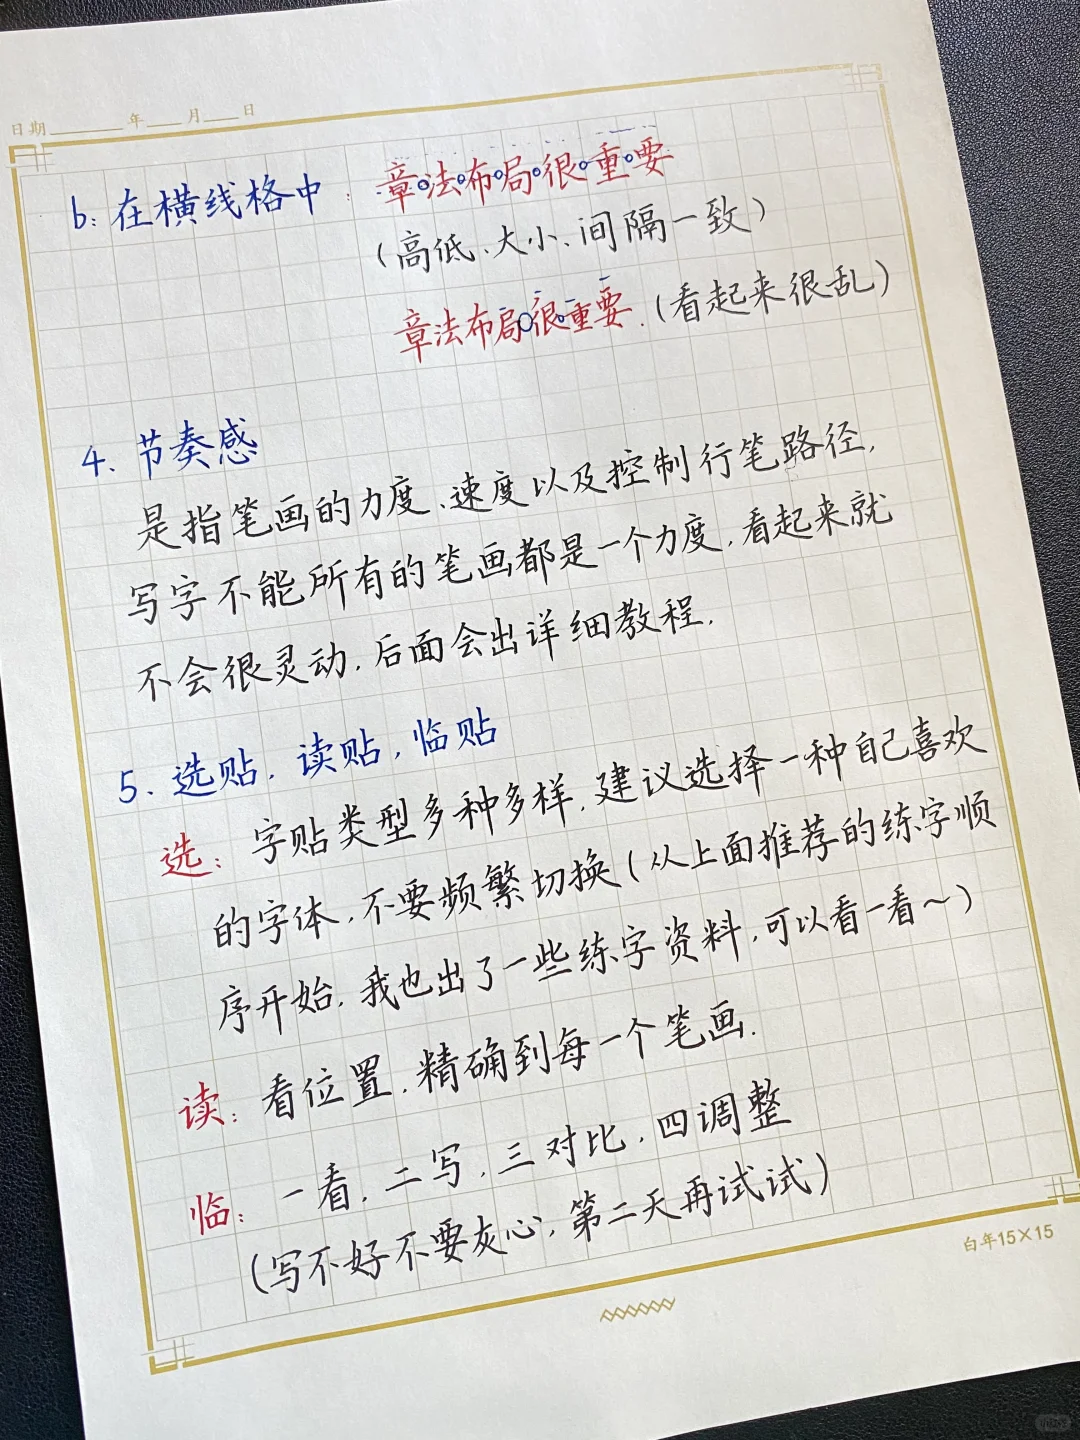 日期____年__月__日
b: 在横线格中: 章法布局很重要
(高低、大小、间隔一致)
章法布局很重要.(看起来很乱)
4、节奏感
是指笔画的力度、速度以及控制行笔路径,
写字不能所有的笔画都是一个力度,看起来就
不会很灵动,后面会出详细教程.
5. 选贴,读贴,临贴
选: 字贴类型多种多样,建议选择一种自己喜欢
的字体,不要频繁切换(从上面推荐的练字顺
序开始,我也出了一些练字资料,可以看一看~)
读: 看位置,精确到每一个笔画.
临: 一看,二写,三对比,四调整
(写不好不要灰心,第二天再试试)
白年15×15
小红书